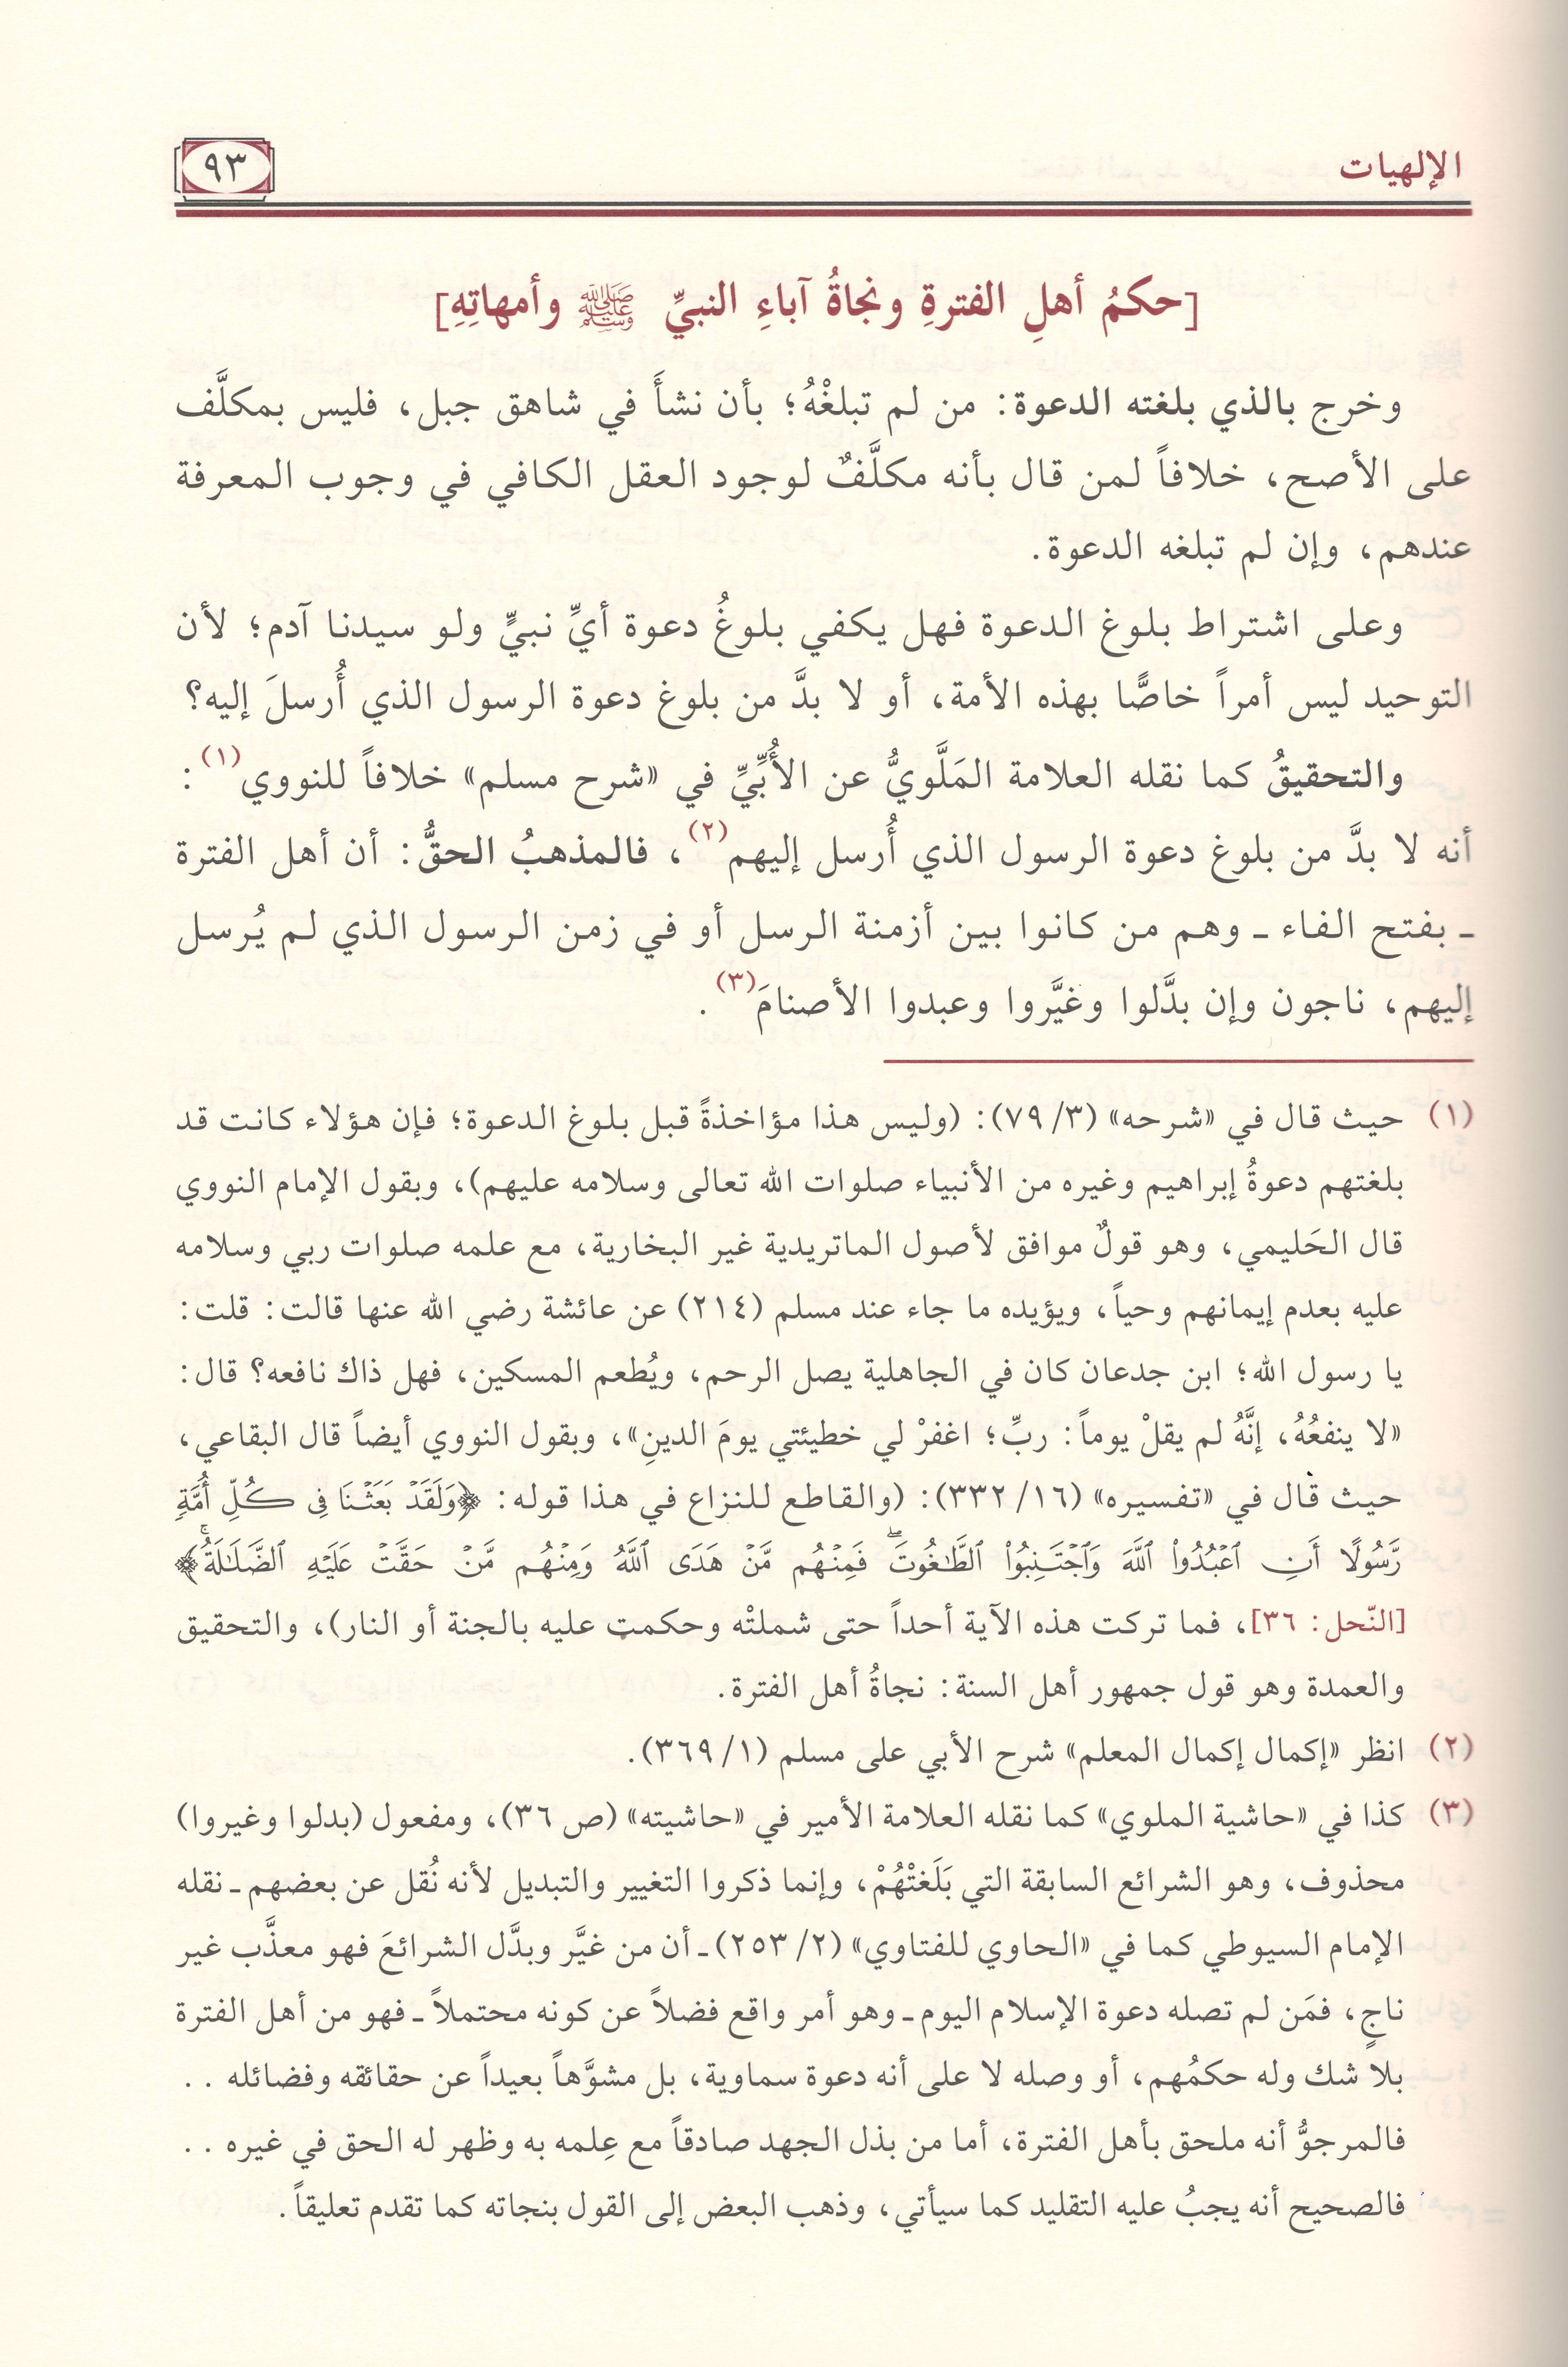 الإلهيات
٩٣
[حكمُ أهلِ الفترةِ ونجاةُ آباءِ النبيِّ ﷺ وأمهاتِهِ]
وخرج بالذي بلغته الدعوة: من لم تبلغْهُ؛ بأن نشأَ في شاهق جبل، فليس بمكلَّف
على الأصح، خلافاً لمن قال بأنه مكلَّفٌ لوجود العقل الكافي في وجوب المعرفة
عندهم، وإن لم تبلغه الدعوة.
وعلى اشتراط بلوغ الدعوة فهل يكفي بلوغُ دعوة أيِّ نبيٍّ ولو سيدنا آدم؛ لأن
التوحيد ليس أمراً خاصًّا بهذه الأمة، أو لا بدَّ من بلوغ دعوة الرسول الذي أُرسلَ إليه؟
والتحقيقُ كما نقله العلامة المَلَّويُّ عن الأُبِّيِّ في «شرح مسلم» خلافاً للنووي(١):
أنه لا بدَّ من بلوغ دعوة الرسول الذي أُرسل إليهم(٢)، فالمذهبُ الحقُّ: أن أهل الفترة
ـ بفتح الفاء ـ وهم من كانوا بين أزمنة الرسل أو في زمن الرسول الذي لم يُرسل
إليهم، ناجون وإن بدَّلوا وغيَّروا وعبدوا الأصنامَ(٣).
(١) حيث قال في «شرحه» (٧٩/٣): (وليس هذا مؤاخذةً قبل بلوغ الدعوة؛ فإن هؤلاء كانت قد
بلغتهم دعوةُ إبراهيم وغيره من الأنبياء صلوات الله تعالى وسلامه عليهم)، وبقول الإمام النووي
قال الحَليمي، وهو قولٌ موافق لأصول الماتريدية غير البخارية، مع علمه صلوات ربي وسلامه
عليه بعدم إيمانهم وحياً، ويؤيده ما جاء عند مسلم (٢١٤) عن عائشة رضي الله عنها قالت: قلت:
يا رسول الله؛ ابن جدعان كان في الجاهلية يصل الرحم، ويُطعم المسكين، فهل ذاك نافعه؟ قال:
«لا ينفعُهُ، إنَّهُ لم يقلْ يوماً: ربِّ؛ اغفرْ لي خطيئتي يومَ الدينِ»، وبقول النووي أيضاً قال البقاعي،
حيث قال في «تفسيره» (٣٣٢/١٦): (والقاطع للنزاع في هذا قوله: ﴿وَلَقَدْ بَعَثْنَا فِي كُلِّ أُمَّةٍ
رَّسُولًا أَنِ ٱعْبُدُوا۟ ٱللَّهَ وَٱجْتَنِبُوا۟ ٱلطَّٰغُوتَۖ فَمِنْهُم مَّنْ هَدَى ٱللَّهُ وَمِنْهُم مَّنْ حَقَّتْ عَلَيْهِ ٱلضَّلَٰلَةُۚ﴾
[النّحل: ٣٦]، فما تركت هذه الآية أحداً حتى شملتْه وحكمت عليه بالجنة أو النار)، والتحقيق
والعمدة وهو قول جمهور أهل السنة: نجاةُ أهل الفترة.
(٢) انظر «إكمال إكمال المعلم» شرح الأبي على مسلم (٣٦٩/١).
(٣) كذا في «حاشية الملوي» كما نقله العلامة الأمير في «حاشيته» (ص ٣٦)، ومفعول (بدلوا وغيروا)
محذوف، وهو الشرائع السابقة التي بَلَغتْهُمْ، وإنما ذكروا التغيير والتبديل لأنه نُقل عن بعضهم ـ نقله
الإمام السيوطي كما في «الحاوي للفتاوي» (٢٥٣/٢) ـ أن من غيَّر وبدَّل الشرائعَ فهو معذَّب غير
ناجٍ، فمَن لم تصله دعوة الإسلام اليوم ـ وهو أمر واقع فضلاً عن كونه محتملاً ـ فهو من أهل الفترة
بلا شك وله حكمُهم، أو وصله لا على أنه دعوة سماوية، بل مشوَّهاً بعيداً عن حقائقه وفضائله . .
فالمرجوُّ أنه ملحق بأهل الفترة، أما من بذل الجهد صادقاً مع عِلمه به وظهر له الحق في غيره . .
فالصحيح أنه يجبُ عليه التقليد كما سيأتي، وذهب البعض إلى القول بنجاته كما تقدم تعليقاً.